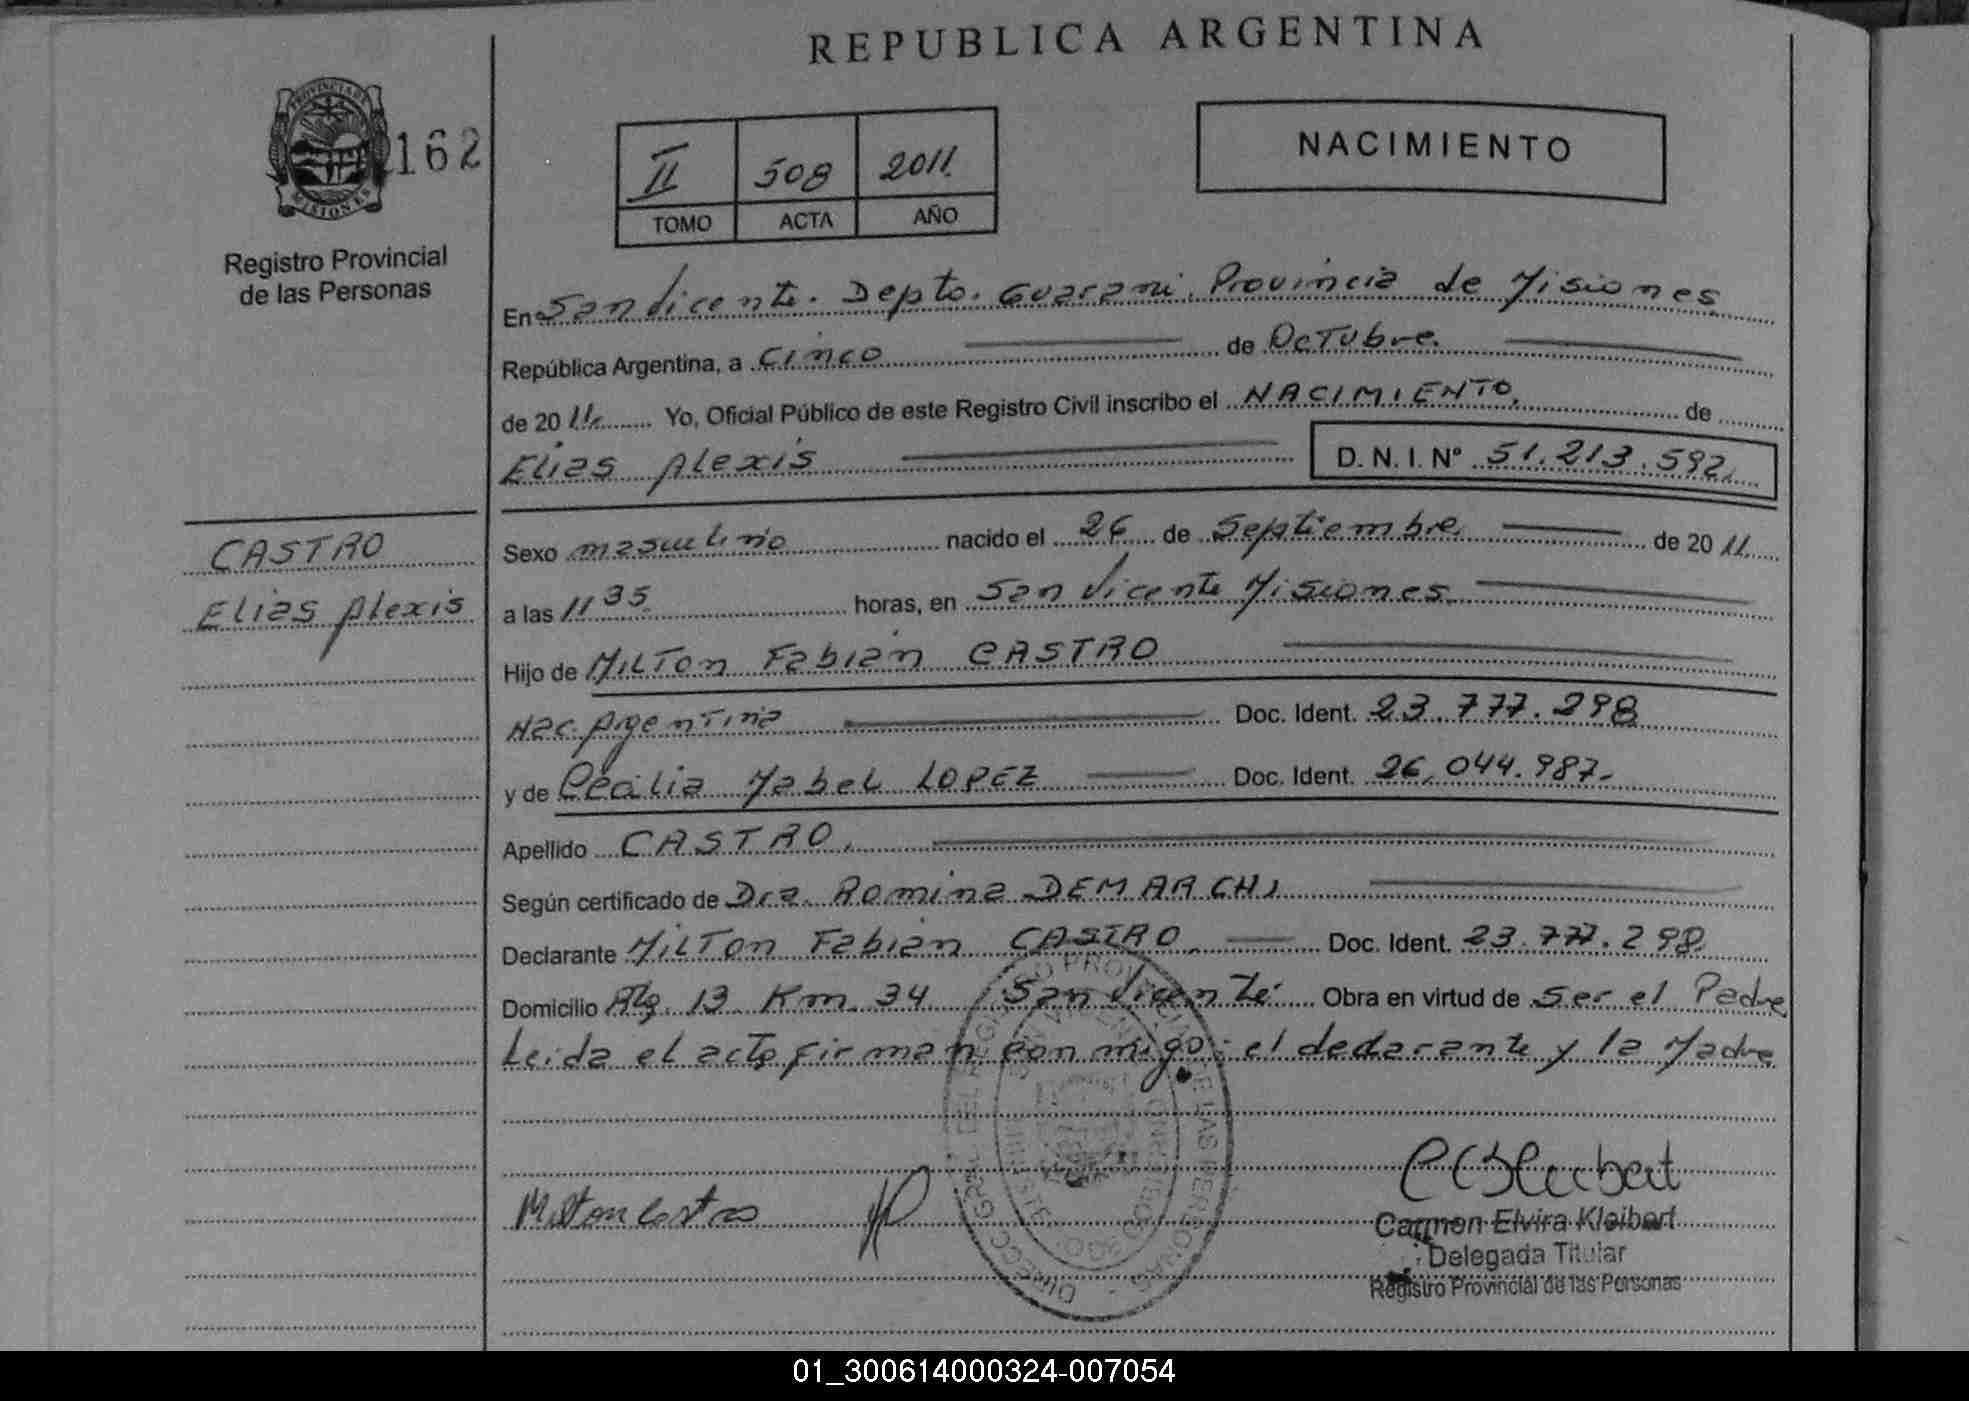 REPUBLICA ARGENTINA
PROVINCIA DE
MISIONES
162
Registro Provincial
de las Personas
II 508 2011
TOMO ACTA AÑO
NACIMIENTO
En San Vicente. Depto. Guarani. Provincia de Misiones
República Argentina, a Cinco de Octubre.
de 2011. Yo, Oficial Público de este Registro Civil inscribo el NACIMIENTO. de
Elias Alexis D. N. I. Nº 51.213.592.
CASTRO
Elias Alexis
Sexo masculino nacido el 26 de Septiembre de 2011
a las 11 35 horas, en San Vicente Misiones.
Hijo de Milton Fabian CASTRO
Nac. Argentina Doc. Ident. 23.777.298
y de Cecilia Mabel LOPEZ Doc. Ident. 26.044.987.
Apellido CASTRO.
Según certificado de Dra. Romina DEMARCHI
Declarante Milton Fabian CASTRO. Doc. Ident. 23.777.298
Domicilio Rta. 13 Km. 34 San Vicente Obra en virtud de Ser el Padre
Leida el acta firman conmigo: el declarante y la Madre
Milton Castro
Carmen Elvira Kleibert
Delegada Titular
Registro Provincial de las Personas
01_300614000324-007054